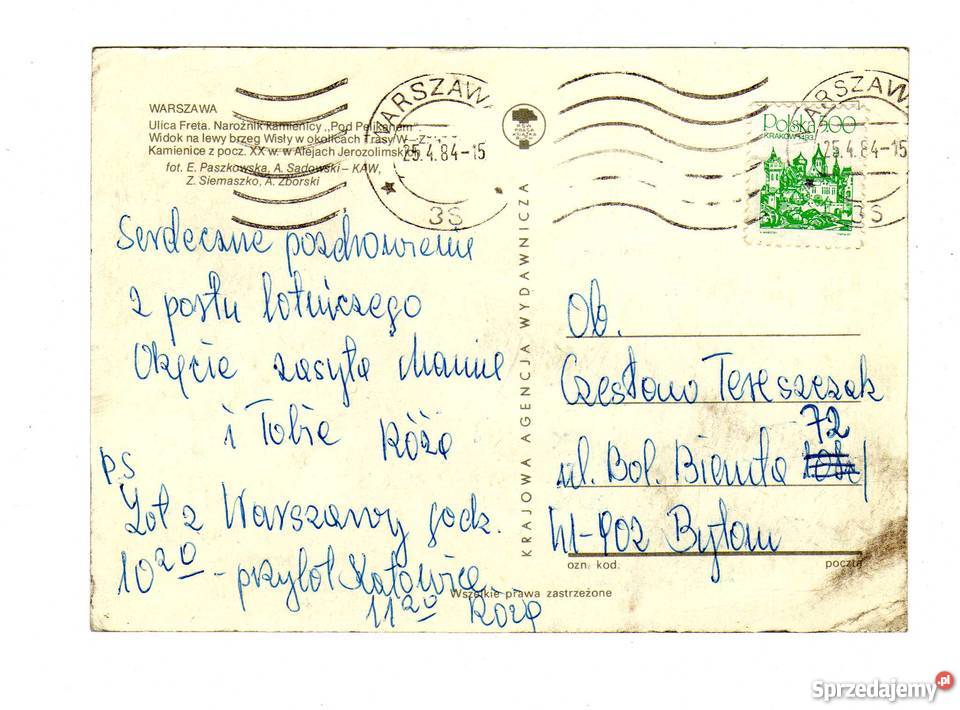 WARSZAWA
Ulica Freta. Narożnik kamienicy „Pod Pelikanem”
Widok na lewy brzeg Wisły w okolicach Trasy W—Z
Kamienice z pocz. XX w. w Alejach Jerozolimskich
fot. E. Paszkowska, A. Sadowski – KAW,
Z. Siemaszko, A. Zborski
WARSZAWA
25.4.84-15
38
Polska 5.00
KRAKÓW 1493
WARSZAWA
25.4.84-15
38
Serdeczne pozdrowienia
z portu lotniczego
Okęcie zasyła Mamie
i Tobie Róża
PS
Lot z Warszawy godz.
10 20 – przylot Katowice
11 20 Róża
KRAJOWA AGENCJA WYDAWNICZA
Ob.
Czesława Tereszczak
72
ul. Bol. Bieruta
41-902 Bytom
ozn. kod. poczta
Wszelkie prawa zastrzeżone
Sprzedajemy.pl